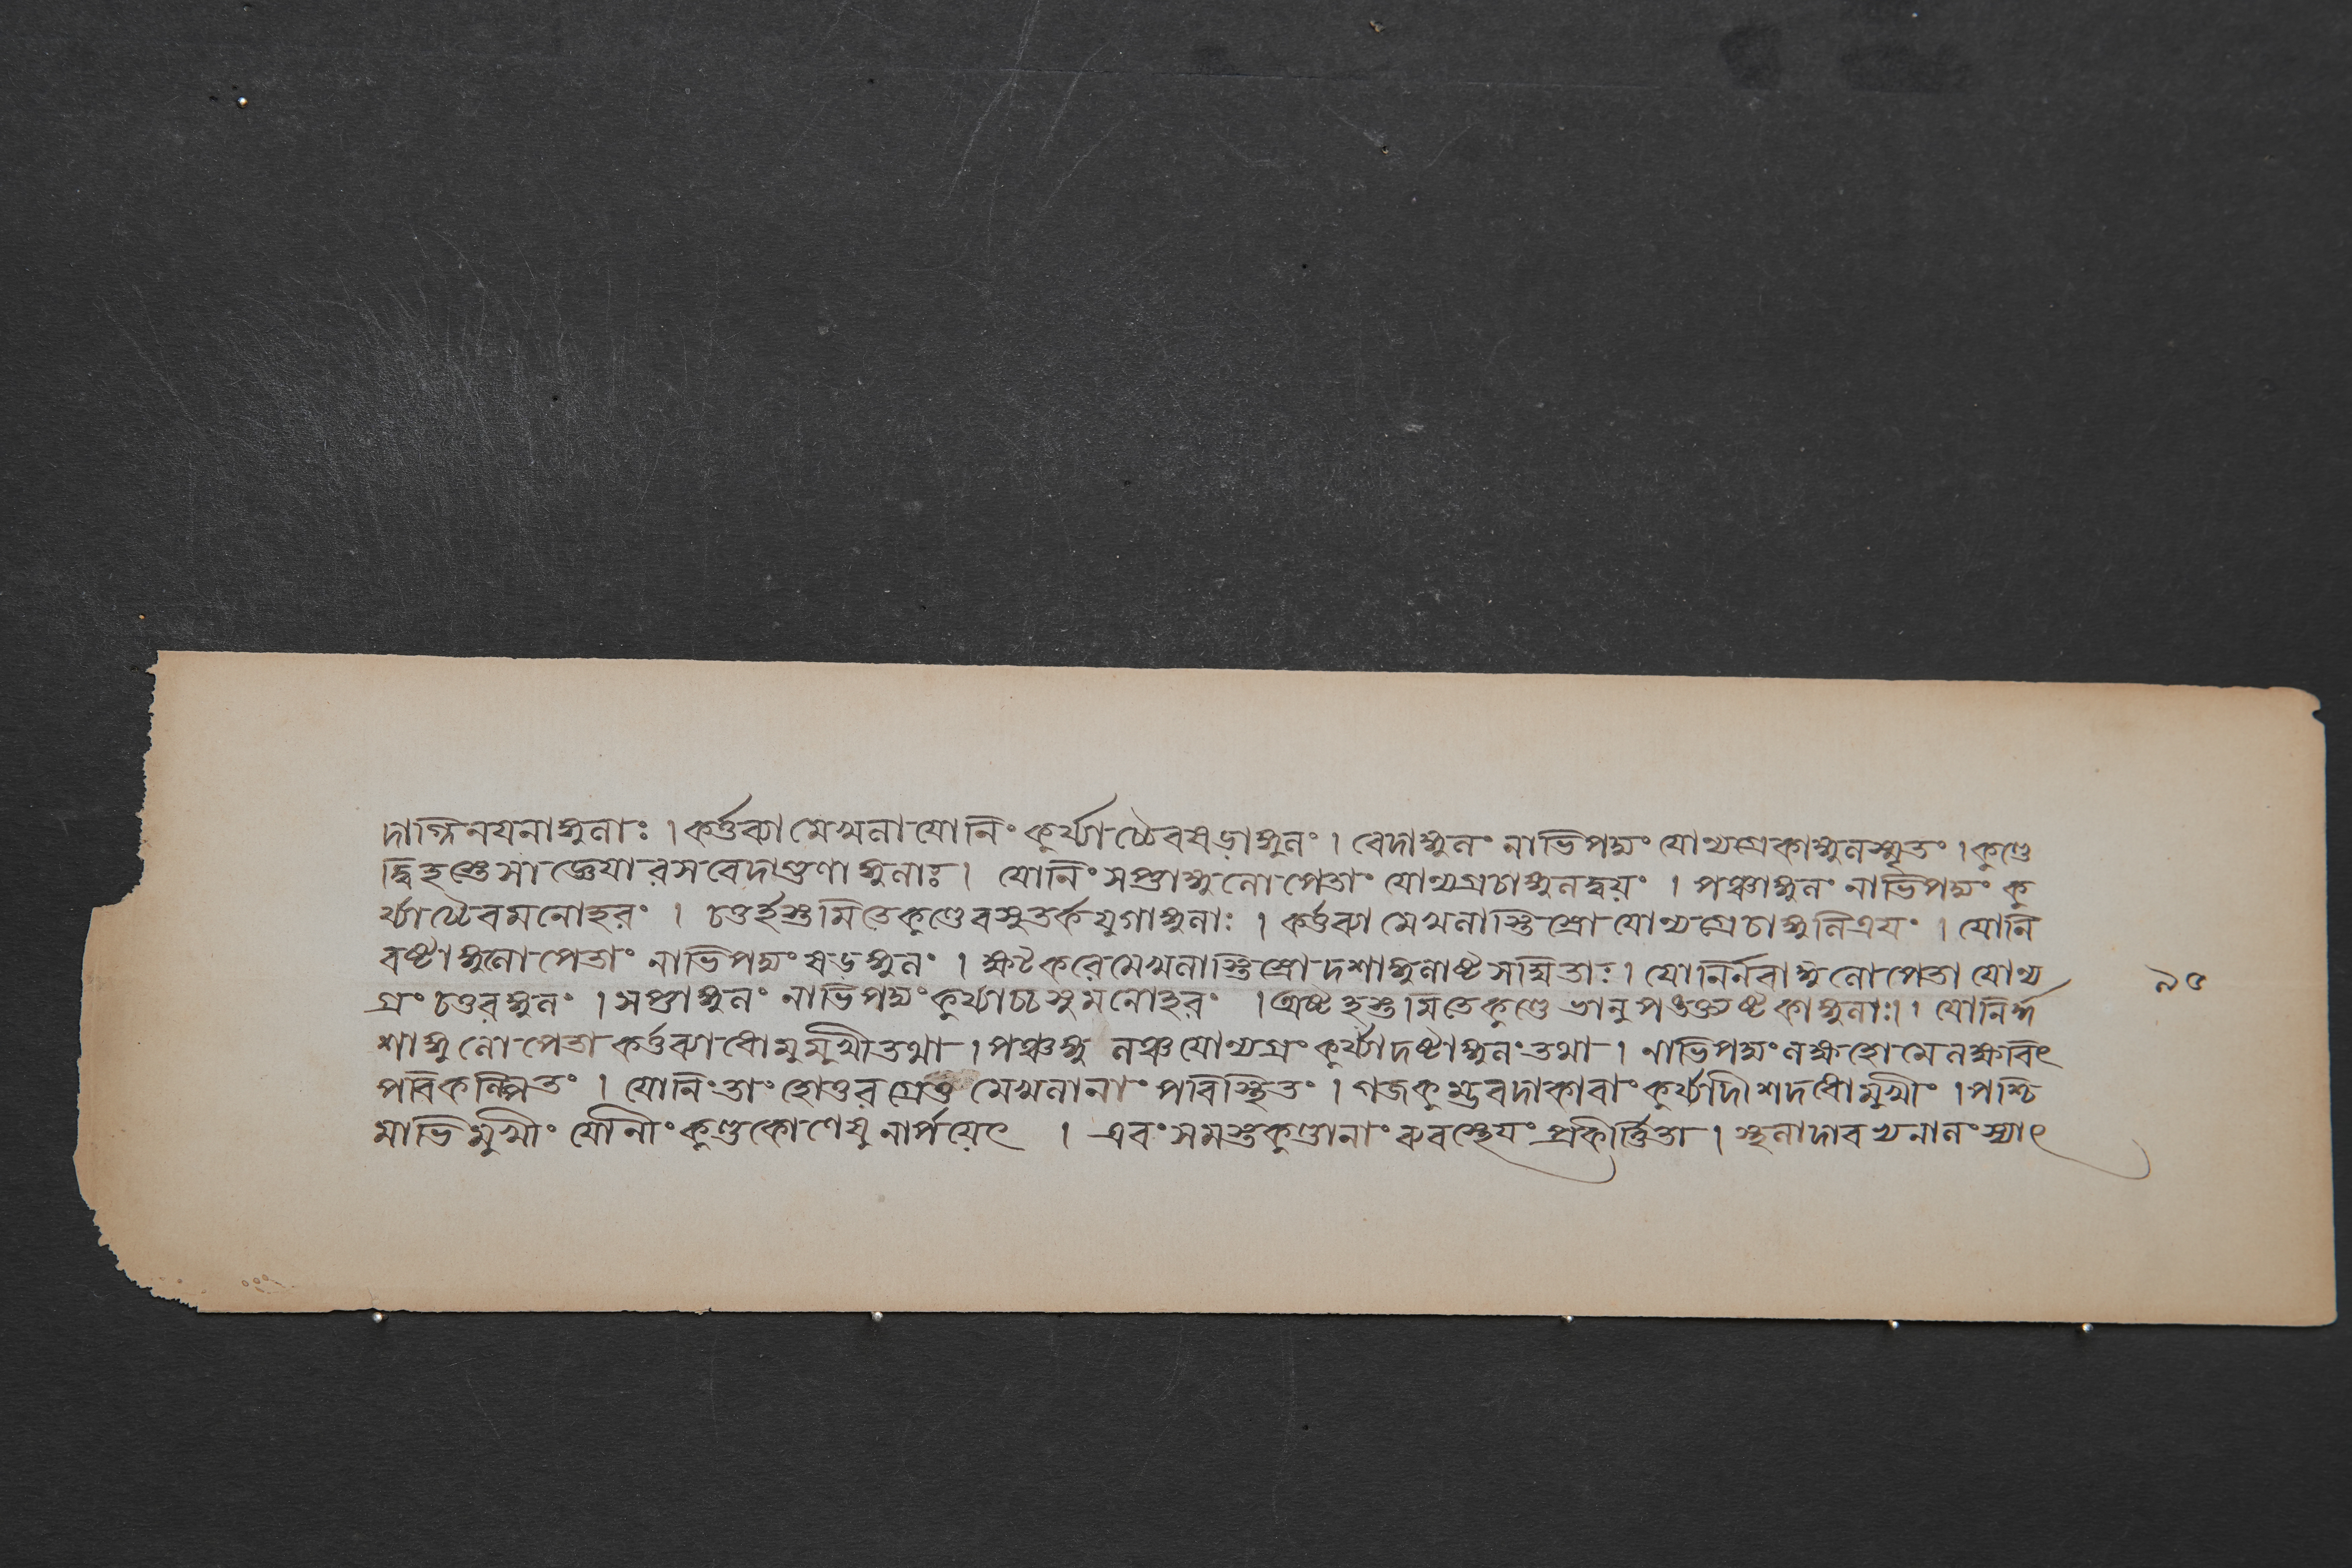 দাগ্নিনযনাঙ্গুলাঃ । কর্ত্তব্যা মেখলা যোনিং কুর্য্যাচ্চৈব ষড়াঙ্গুলং । বেদাঙ্গুলং নাভিপদ্মং যোন্যগ্রেকাঙ্গুলস্মৃতং । কুণ্ডে
দ্বিহস্তে সা জ্ঞেযা রসবেদাগুণাঙ্গুলাঃ । যোনিং সপ্তাঙ্গুলোপেতাং যোন্যগ্রচাঙ্গুলদ্বয়ং । পঞ্চাঙ্গুলং নাভিপদ্মং কু
র্য্যাচ্চৈব মনোহরং । চতুর্হস্তমিতে কুণ্ডে বসুতর্কযুগাঙ্গুলাঃ । কর্ত্তব্যা মেখলাস্তিস্রো যোন্যগ্রেচাঙ্গুলিত্রযং । যোনি
বষ্টাঙ্গুলোপেতাং নাভিপদ্মং ষড়ঙ্গুলং । ষট্করে মেখলাস্তিস্রো দশাঙ্গুলাষ্টসম্মিতাঃ । যোনির্নবাঙ্গুলোপেতা যোন্য
৯৫
গ্রং চতুরঙ্গুলং । সপ্তাঙ্গুলং নাভিপদ্মং কুর্য্যাচ্চ সুমনোহরং । অষ্টহস্তমিতে কুণ্ডে ভানুপঙক্ত্যষ্টকাঙ্গুলাঃ । । যোনির্দ্দ
শাঙ্গুলোপেতা কর্ত্তব্যাধোমুমুখী তথা । পঞ্চঙ্গুলঞ্চ যোন্যগ্রং কুর্য্যাদষ্টাঙ্গুলং তথা । নাভিপদ্মং লক্ষহোমে লক্ষবিৎ
পরিকল্পিতং । যোনিং তাং হোতুরগ্রেতু মেখলানাং পরিস্থিতং । গজকুম্ভবদাকারাং কুর্য্যাদীশদধোমুখীং । পশ্চি
মাভিমুখীং যোনীং কুণ্ডকোণেষু নার্পয়েৎ । এবং সমস্তকুণ্ডানাং ব্যবস্থেযং প্রকীর্ত্তিতা । স্থলাদারখনালং স্যাৎ